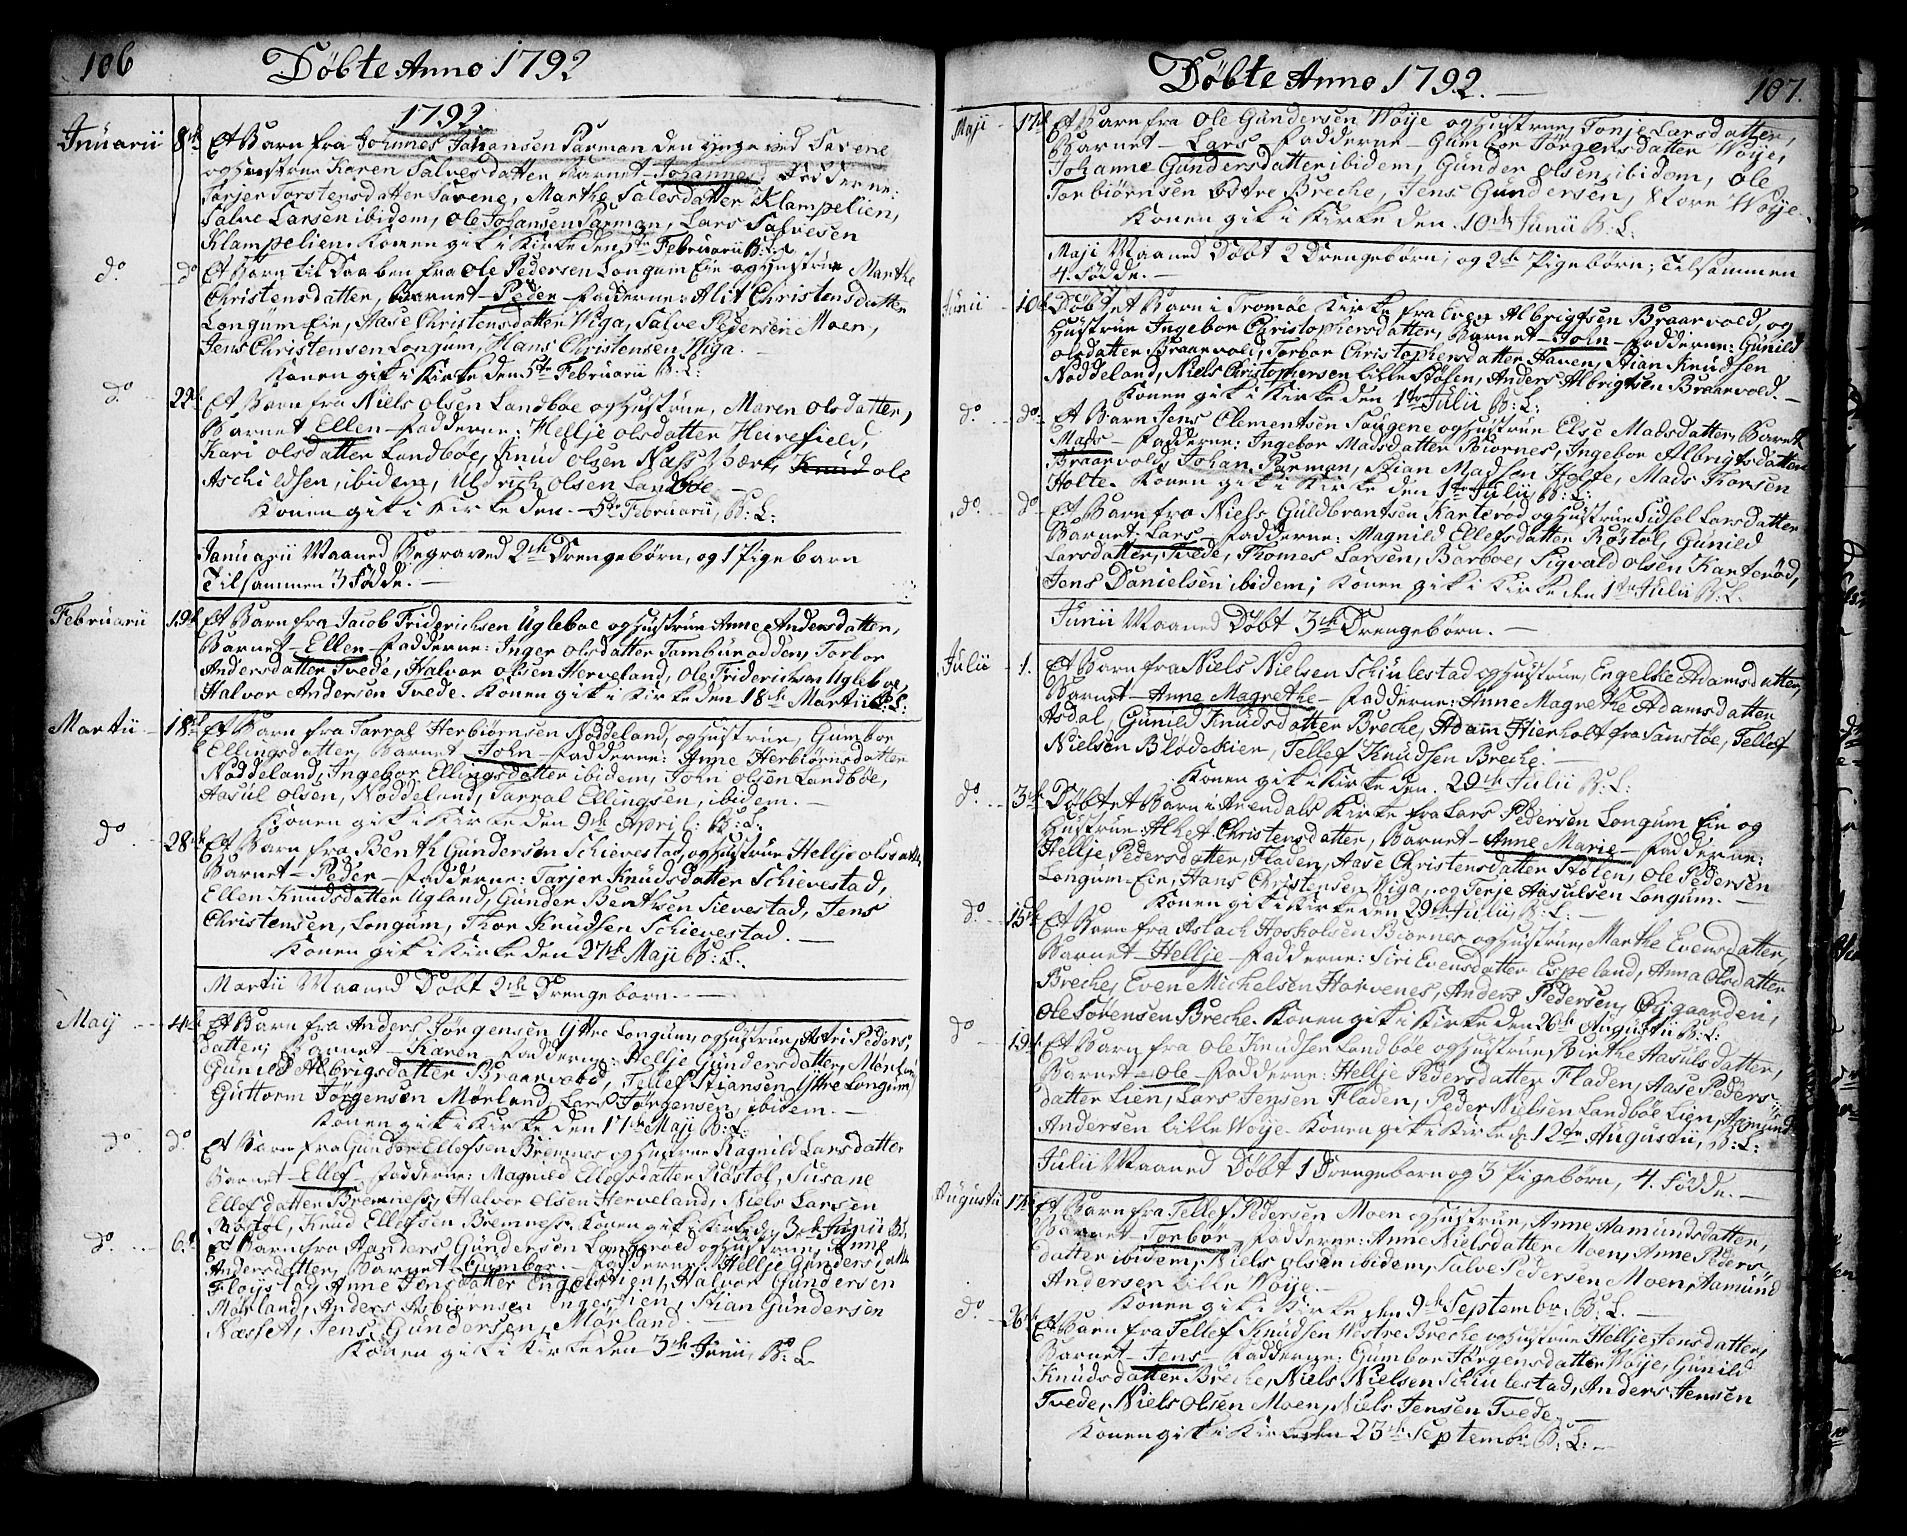 106 Döbte Anno 1792
1792
Januarii 8de Et Barn fra Johannes Johansen Parman den Ynge ved Savene
og Hustrue Karen Salvesdatter Barnet Johannes Fadderne:
Tarjer Torstensdatter Savene, Marthe Salvesdatter Klampelien,
Salve Larsen ibidem, Ole Johansen Parman, Lars Salvesen
Klampelien. Konen gik i Kirke den 5te Februarii B: L:
do do Et Barn til Daaben fra Ole Pedersen Longum Eie og Hustrue Marthe
Christensdatter, Barnet Peder Fadderne: Alit Christensdatter
Longum Eie, Aase Christensdatter Wiga, Salve Pedersen Moen,
Jens Christensen Longum, Hans Christensen Wiga.
Konen gik i Kirke den 5te Februarii B: L:
do 29de Et Barn fra Niels Olsen Landböe og Hustrue, Maren Olsdatter,
Barnet Ellen Fadderne: Hellje Olsdatter Heirefield,
Kari Olsdatter Landböe, Knud Olsen Næss Værk, Knud Ole
Aschildsen, ibidem, Uldrich Olsen Landböe
Konen gik i Kirke den 5te Februarii, B: L:
Januarii Maaned Begraved 2de Drengebörn, og 1 Pigebarn
Tilsammen 3 Födde.
Februarii 19de Et Barn fra Jacob Friderichsen Ugleboe og Hustrue Anne Andersdatter,
Barnet Ellen Fadderne: Inger Olsdatter Tambur odden, Torbor
Andersdatter Tvede, Halvor Olsen Herveland, Ole Friderichsen Ugleboe,
Halvor Andersen Tvede. Konen gik i Kirke den 18de Martii B: L:
Martii 18de Et Barn fra Tarral Herbiörnsen Nöddeland, og Hustrue, Gumbor
Ellingsdatter, Barnet John Fadderne: Anne Herbiörnsdatter
Nöddeland, Ingebor Ellingsdatter ibidem, John Olsen Landböe,
Aasul Olsen, Nöddeland, Tarral Ellingsen, ibidem.
Konen gik i Kirke den 9de April: B: L:
do 28de Et Barn fra Benth Gundersen Schievestad, og Hustrue Hellje Olsdatter
Barnet Peder Fadderne: Tarjer Knudsdatter Schievestad,
Ellen Knudsdatter Ugland, Gunder Bentsen Sievestad, Jens
Christensen, Longum, Thor Knudsen Schievestad.
Konen gik i Kirke den 27de Maji B: L:
Martii Maaned Döbt 2de Drengebörn.
May 4de Et Barn fra Anders Jörgensen Yttre Longum, og Hustrue, Astri Peders-
datter, Barnet Karen Fadderne: Hellje Gundersdatter, Mörland
Gunild Albrigsdatter Braarvold, Tellef Stiansen Yttre Longum,
Guttorm Jörgensen Mörland, Lars Jörgensen, ibidem.
Konen gik i Kirke den 17de Maji B: L:
do do Et Barn fra Gunder Ellefsen Bremnes og Hustrue Ragnild Larsdatter
Barnet Ellef Fadderne: Magnild Ellefsdatter Röstöl, Susane
Ellefsdatter Bremness, Halvor Olsen Herveland, Niels Larsen
Röstöl, Knud Ellefsen Bremness. Konen gik i Kirke den 3de Junii B: L:
do 6te Et Barn fra Aanders Gundersen og Hustrue,
Andersdatter, Barnet Gumbor Fadderne: Hellje Gundersdatter
Flöystad, Anne Jensdatter Engelstien, Halvor Gundersen
Mörland, Anders Asbiörnsen Engestien, Stian Gundersen
Næsset, Jens Gundersen, Mörland.
Konen gik i Kirke den 3de Junii, B: L:
Döbte Anno 1792. 107.
Maji 17de Et Barn fra Ole Gundersen Wöije og Hustrue, Tonje Larsdatter,
Barnet Lars Fadderne Gumbor Jörgensdatter Wöije,
Johanne Gundersdatter ibidem, Gunder Olsen, ibidem, Ole
Torbiörnsen Östre Breche, Jens Gundersen, Store Wöije.
Konen gik i Kirke den 10de Junii B: L:
Maji Maaned Döbt 2 Drengebörn, og 2de Pigebörn, Tilsammen
4. Födde.
Junii 10de Döbt et Barn i Tromöe Kirke fra Even Albrigtsen Braarvold, og
Hustrue Ingebor Christophersdatter, Barnet John Fadderne: Gunild
Olsdatter Braarvold, Torbor Christophersdatter Haven, Stian Knudsen
Nöddeland, Niels Christophersen Lille Stölen, Anders Albrigtsen Braarvold.
Konen gik i Kirke den 1te Julii B: L:
do do Et Barn Jens Clementsen Saugene og Hustrue Else Madsdatter, Barnet
Mads Fadderne: Ingebor Madsdatter Biörnes, Ingebor Albrigtsdatter
Braarvold, Johan Parman, Stian Madsen Holte, Mads Thorsen
Holte. Konen gik i Kirke den 1te Julii B: L:
do do Et Barn fra Niels Guldbrantsen Karteröd og Hustrue Sidsel Larsdatter
Barnet Lars Fadderne: Magnild Ellefsdatter Röstöl, Gunild
Larsdatter, Tvede, Thomes Larsen, Barboe, Sigvald Olsen Karteröd,
Jens Danielsen ibidem, Konen gik i Kirke den 1te Julii B: L:
Junii Maaned Döbt 3de Drengebörn.
Julii 1. Et Barn fra Niels Nielsen Schiulestad og Hustrue, Engelke Adamsdatter,
Barnet Anne Magrethe Fadderne: Anne Magrethe Adamsdatter
Asdal, Gunild Knudsdatter Breche, Adam Hierholt fra Sanstöe, Tellef
Nielsen Blödekier, Tellef Knudsen Breche.
Konen gik i Kirke den. 29de Julii B: L:
do 3de Döbt et Barn i Arendals Kirke fra Lars Pedersen Longum Eie og
Hustrue Alhet Christensdatter, Barnet Anne Marie Fadderne:
Hellje Pedersdatter, Fladen, Aase Christensdatter Stölen, Ole Pedersen
Longum Eie, Hans Christensen Wiga, og Terje Aasulsen Longum.
Konen gik i Kirke den 29de Julii, B: L:
do 15de Et Barn fra Aslach Hoskolsen Biornes og Hustrue, Marthe Evensdatter,
Barnet Hellje Fadderne: Siri Evensdatter Espeland, Anna Olsdatter
Breche, Even Michelsen Horvenes, Anders Pedersen, Öygaarden,
Ole Sörensen Breche. Konen gik i Kirke den 26de Augustii B: L:
do 19de Et Barn fra Ole Knudsen Landböe og Hustrue, Birthe Aasulsdatter,
Barnet Ole Fadderne: Hellje Pedersdatter Fladen, Aase Peders-
datter Lien, Lars Jensen Fladen, Peder Nielsen Landböe Lien, Asmund
Andersen Lille Wöije Konen gik i Kirke d. 12te Augustii, B: L:
Julii Maaned Döbt 1 Drengebarn og 3 Pigebörn, 4. Födde.
Augustii Et Barn fra Tellef Pedersen Moen og Hustrue, Anne Aamundsdatter,
Barnet Torbör Fadderne: Anne Nielsdatter Moen, Anne Peders-
datter ibidem, Niels Olsen ibidem, Salve Pedersen Moen, Aamund
Andersen Lille Wöije
Konen gik i Kirke den 9de Septembr. B: L.
do 26de Et Barn fra Tellef Knudsen Westre Breche og Hustrue Hellje Jensdatter,
Barnet Jens Fadderne: Gumbor Jörgensdatter Wöije, Gunild
Knudsdatter Breche, Niels Nielsen Schiulestad, Anders Jensen
Tvede, Niels Olsen Moen, Niels Jensen Tvede
Konen gik i Kirke den 23de Septembr. B: L: